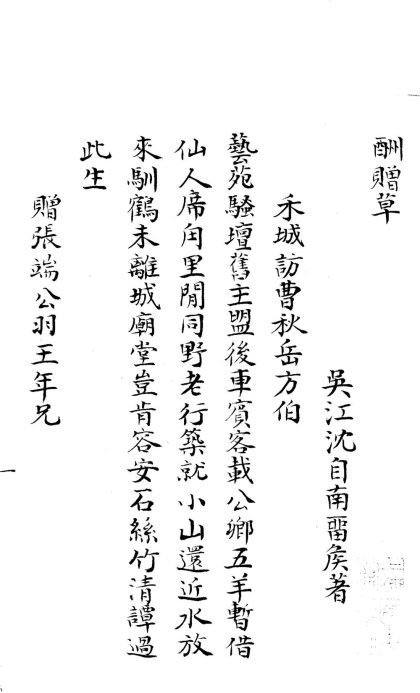 酬贈草
吳江沈自南畱矦著
禾城訪曹秋岳方伯
藝苑騷壇舊主盟後車賓客載公鄉五羊暫借
仙人席甪里閒同野老行築就小山還近水放
來馴鶴未離城廟堂豈肯容安石絲竹清譚過
此生
贈張端公羽王年兄
一